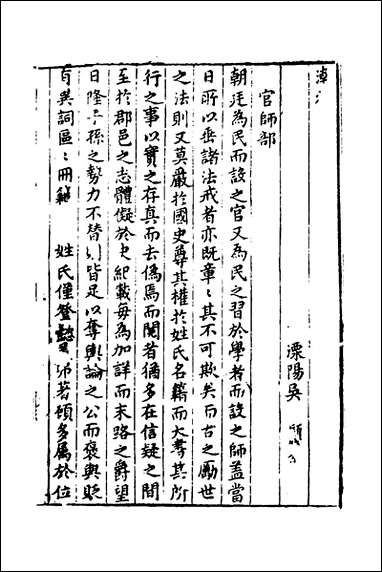 官師部
溧陽吳
朝廷為民而設之官又為民之習於學者而設之師蓋當
日所以垂諸法戒者亦既章〻其不可欺矣而古之勵世
之法則又莫嚴於國史尊其權於姓氏名籍而大書其所
行之事以實之存真而去偽焉而閱者猶多在信疑之間
至於郡邑之志體儗於史紀載毋為加詳而末路之爵望
日隆子孫之勢力不替則皆足以奪輿論之公而褒與貶
有異詞區〻冊籍 姓氏僅登 著頓多屬於位